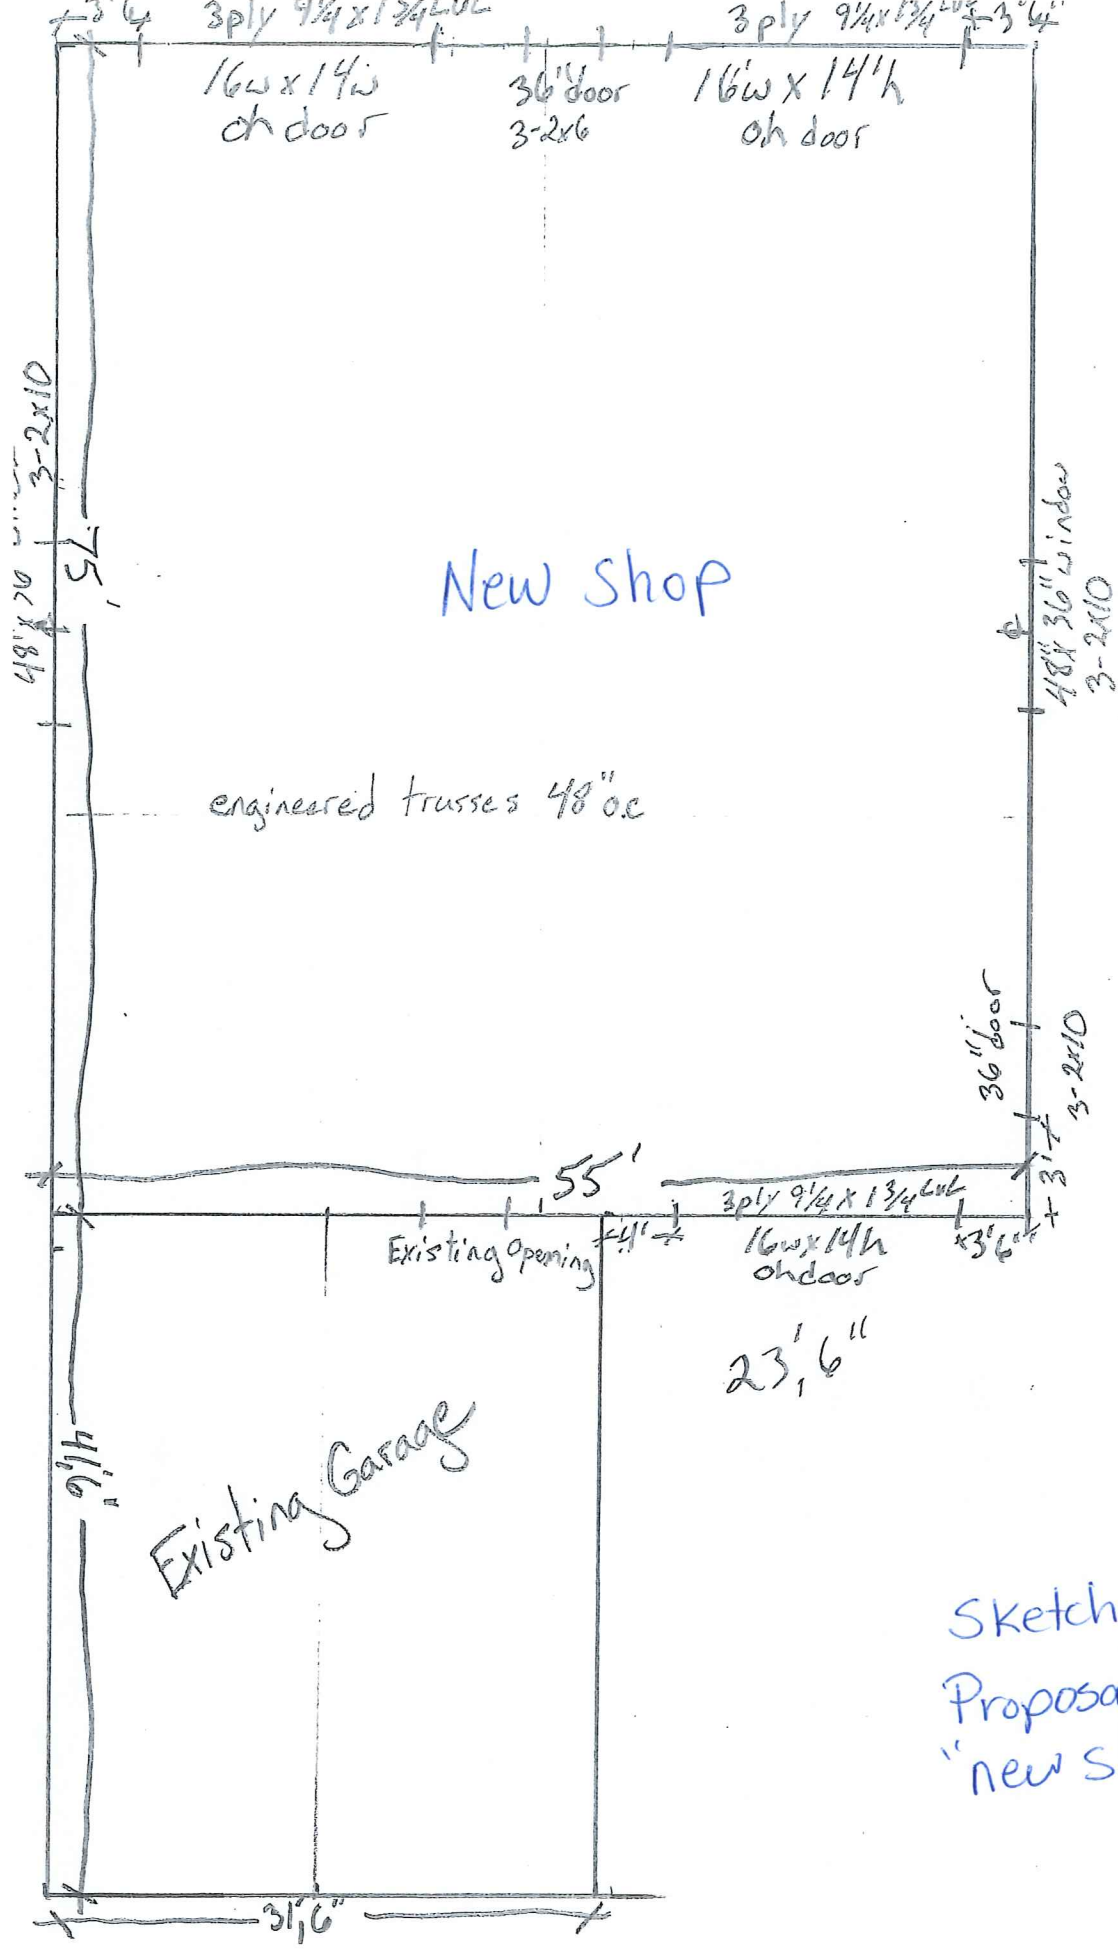 3'6" 3ply 9 1/4 x 1 3/4 LVL 3ply 9 1/4 x 1 3/4 LVL
16w x 14w 36" door 16'w x 14'h
oh door 3-2x6 oh door
3-2x10
75'
New Shop
48" x 36" window
3-2x10
engineered trusses 48" o.c
36" door
3-2x10
3'
55'
3ply 9 1/4 x 1 3/4 LVL
Existing Opening 4' 16w x 14h 3'6"
ohdoor
23',6"
41',6"
Existing Garage
Sketch
Proposa
"new S
31',6"